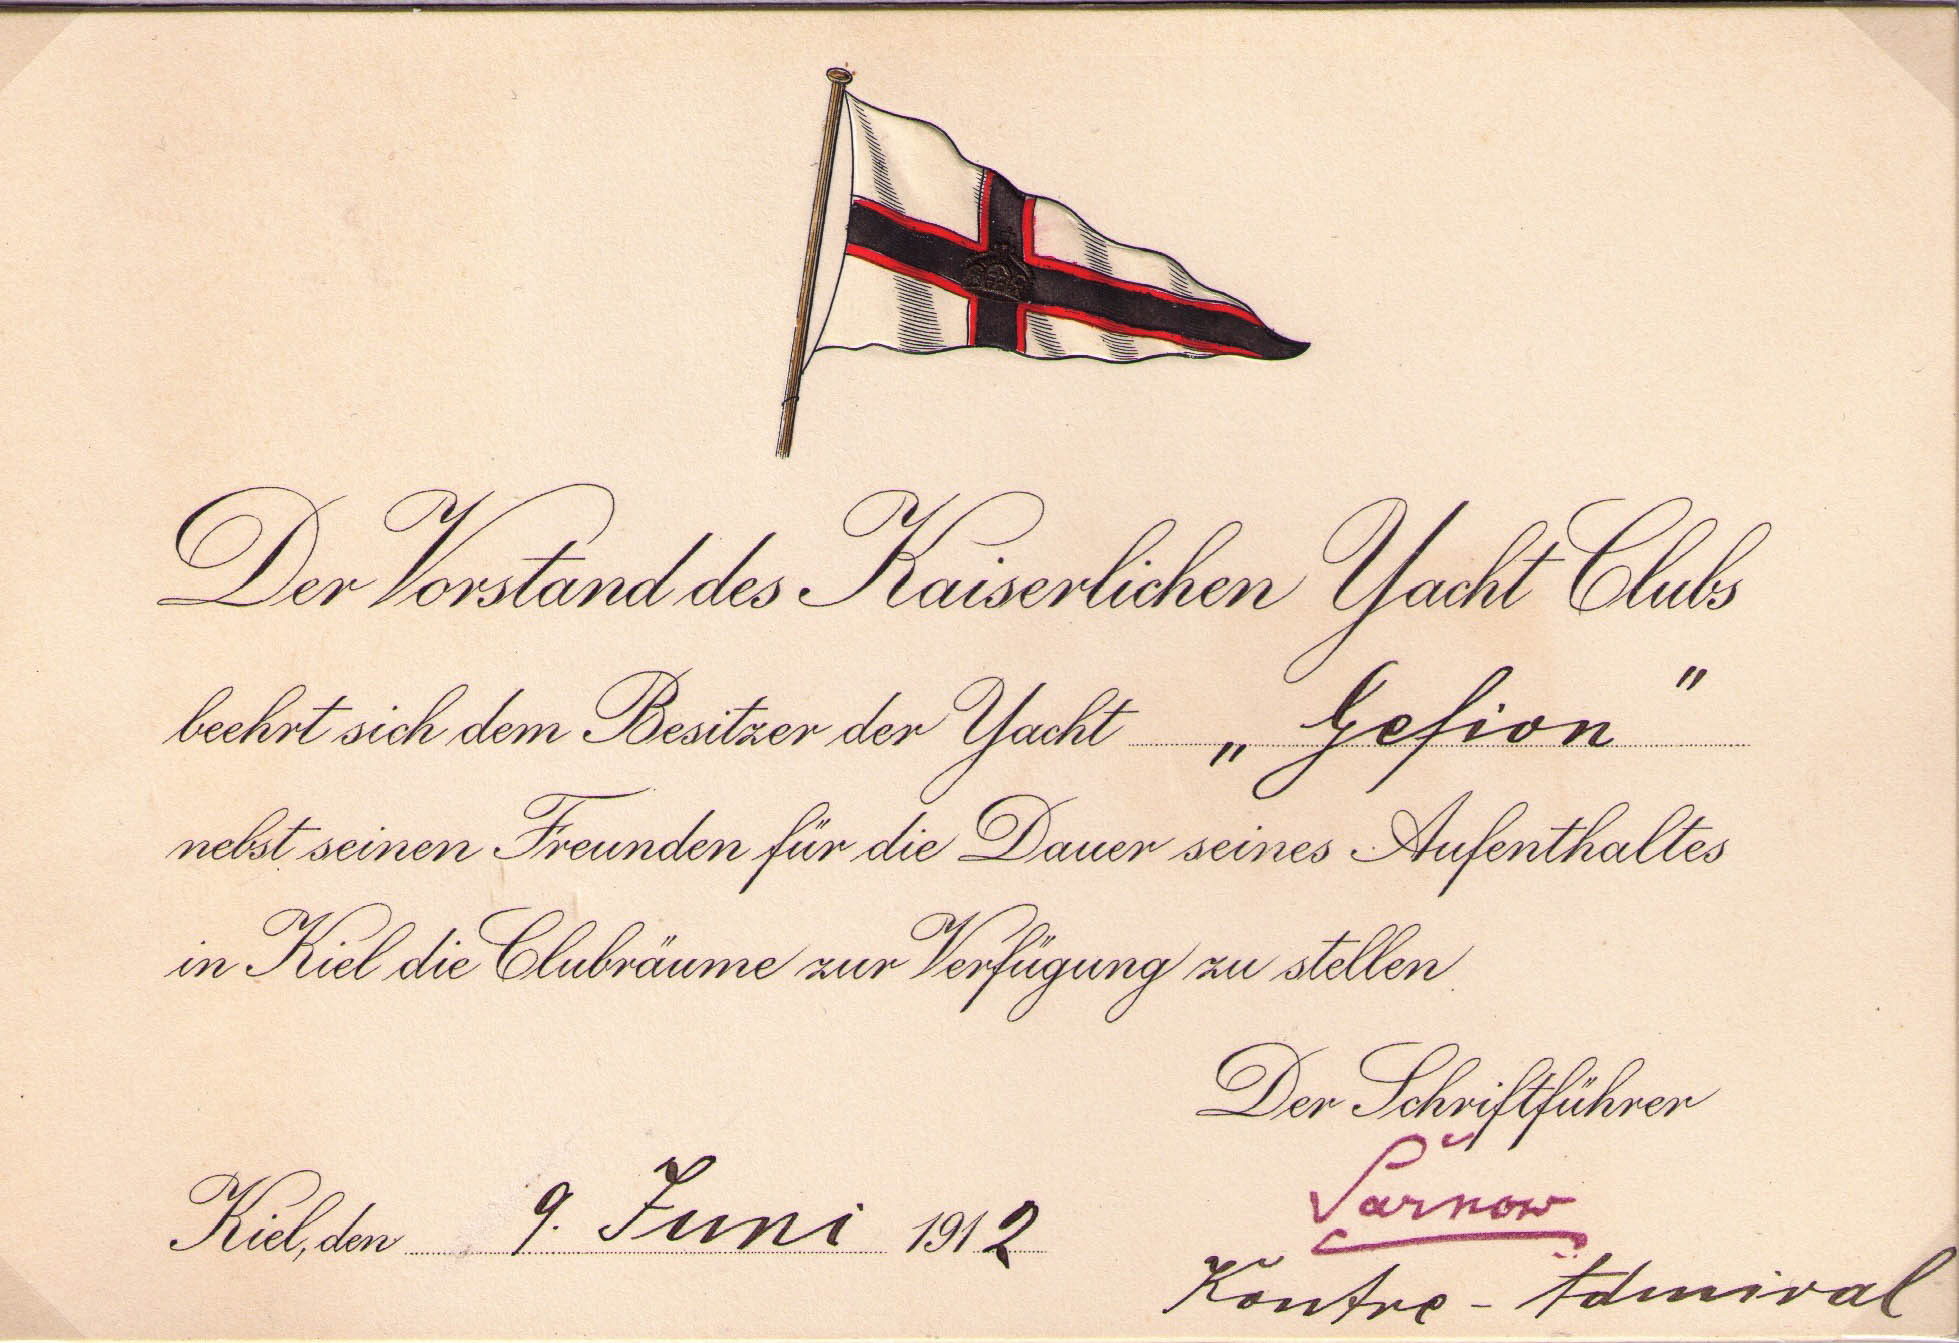 Der Vorstand des Kaiserlichen Yacht Clubs
beehrt sich dem Besitzer der Yacht „Gefion“
nebst seinen Freunden für die Dauer seines Aufenthaltes
in Kiel die Clubräume zur Verfügung zu stellen.
Der Schriftführer
Sarnow
Kiel, den 9. Juni 1912
Kontre-Admiral